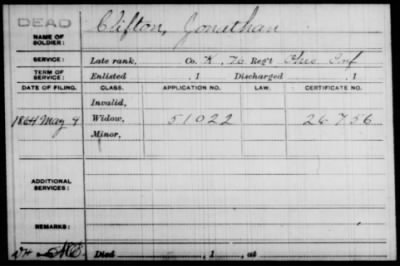 DEAD
NAME OF SOLDIER: Clifton, Jonathan
SERVICE: Late rank, Co. K, 70 Regt Ohio Inf
TERM OF SERVICE: Enlisted , 1 Discharged , 1
DATE OF FILING. CLASS. APPLICATION NO. LAW. CERTIFICATE NO.
Invalid,
1864 May 4 Widow, 51022 26756
Minor,
ADDITIONAL SERVICES:
REMARKS:
Died , 1 , at